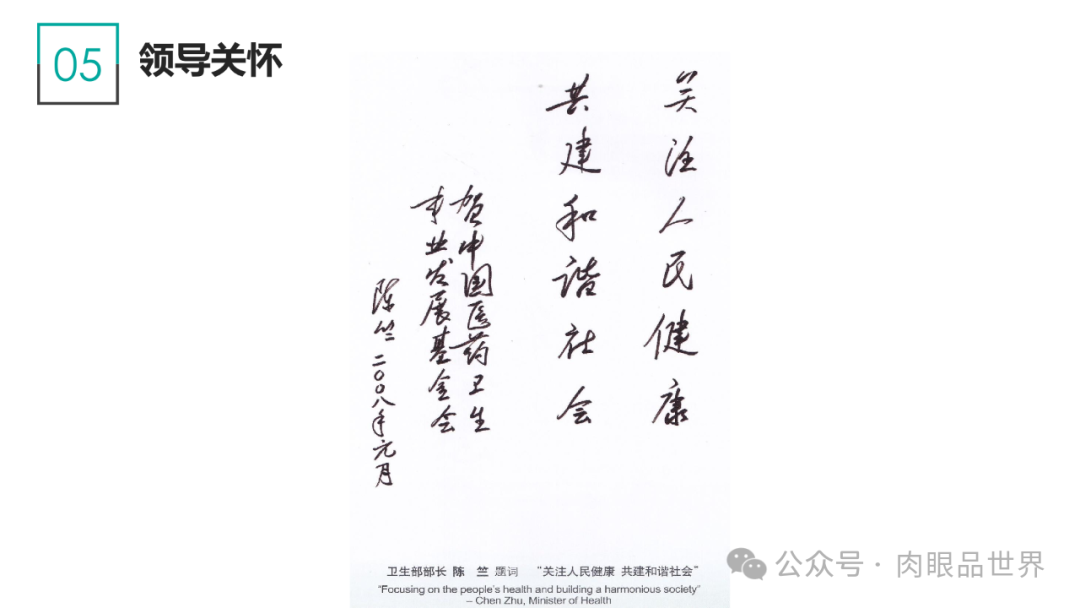 05
领导关怀
关注人民健康
共建和谐社会
贺中国医药卫生
事业发展基金会
陈竺 二〇〇八年元月
卫生部部长 陈 竺 题词 “关注人民健康 共建和谐社会”
“Focusing on the people's health and building a harmonious society”
– Chen Zhu, Minister of Health
公众号 · 肉眼品世界